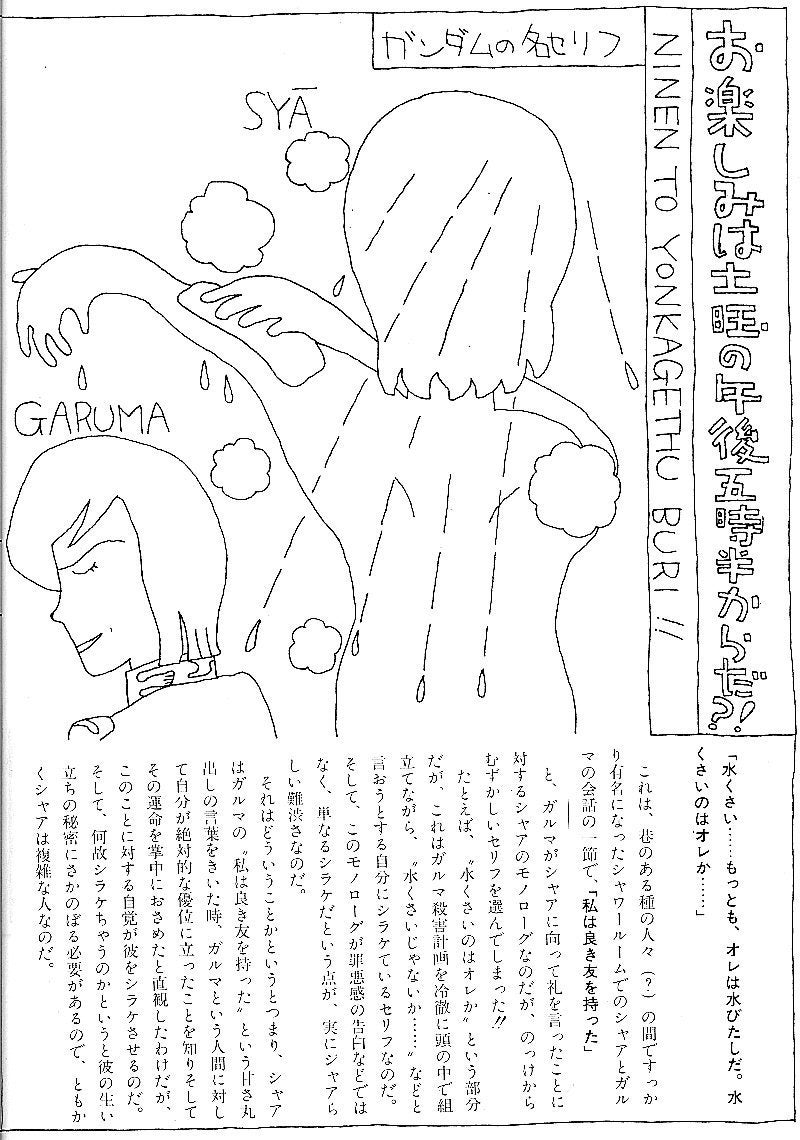 お楽しみは土旺の午後五時半からだ?!
NINEN TO YONKAGETHU BURI !!
ガンダムの名セリフ
SYĀ
GARUMA
「水くさい……もっとも、オレは水びたしだ。水
くさいのはオレか……」
これは、巷のある種の人々(?)の間ですっか
り有名になったシャワールームでのシャアとガル
マの会話の一節で、「私は良き友を持った」
と、ガルマがシャアに向って礼を言ったことに
対するシャアのモノローグなのだが、のっけから
むずかしいセリフを選んでしまった!!
たとえば、〝水くさいのはオレか〟という部分
だが、これはガルマ殺害計画を冷徹に頭の中で組
立てながら、〝水くさいじゃないか……〟などと
言おうとする自分にシラケているセリフなのだ。
そして、このモノローグが罪悪感の告白などでは
なく、単なるシラケだという点が、実にシャアら
しい難渋さなのだ。
それはどういうことかというとつまり、シャア
はガルマの〝私は良き友を持った〟という甘さ丸
出しの言葉をきいた時、ガルマという人間に対し
て自分が絶対的な優位に立ったことを知りそして
その運命を掌中におさめたと直観したわけだが、
このことに対する自覚が彼をシラケさせるのだ。
そして、何故シラケちゃうのかというと彼の生い
立ちの秘密にさかのぼる必要があるので、ともか
くシャアは複雑な人なのだ。